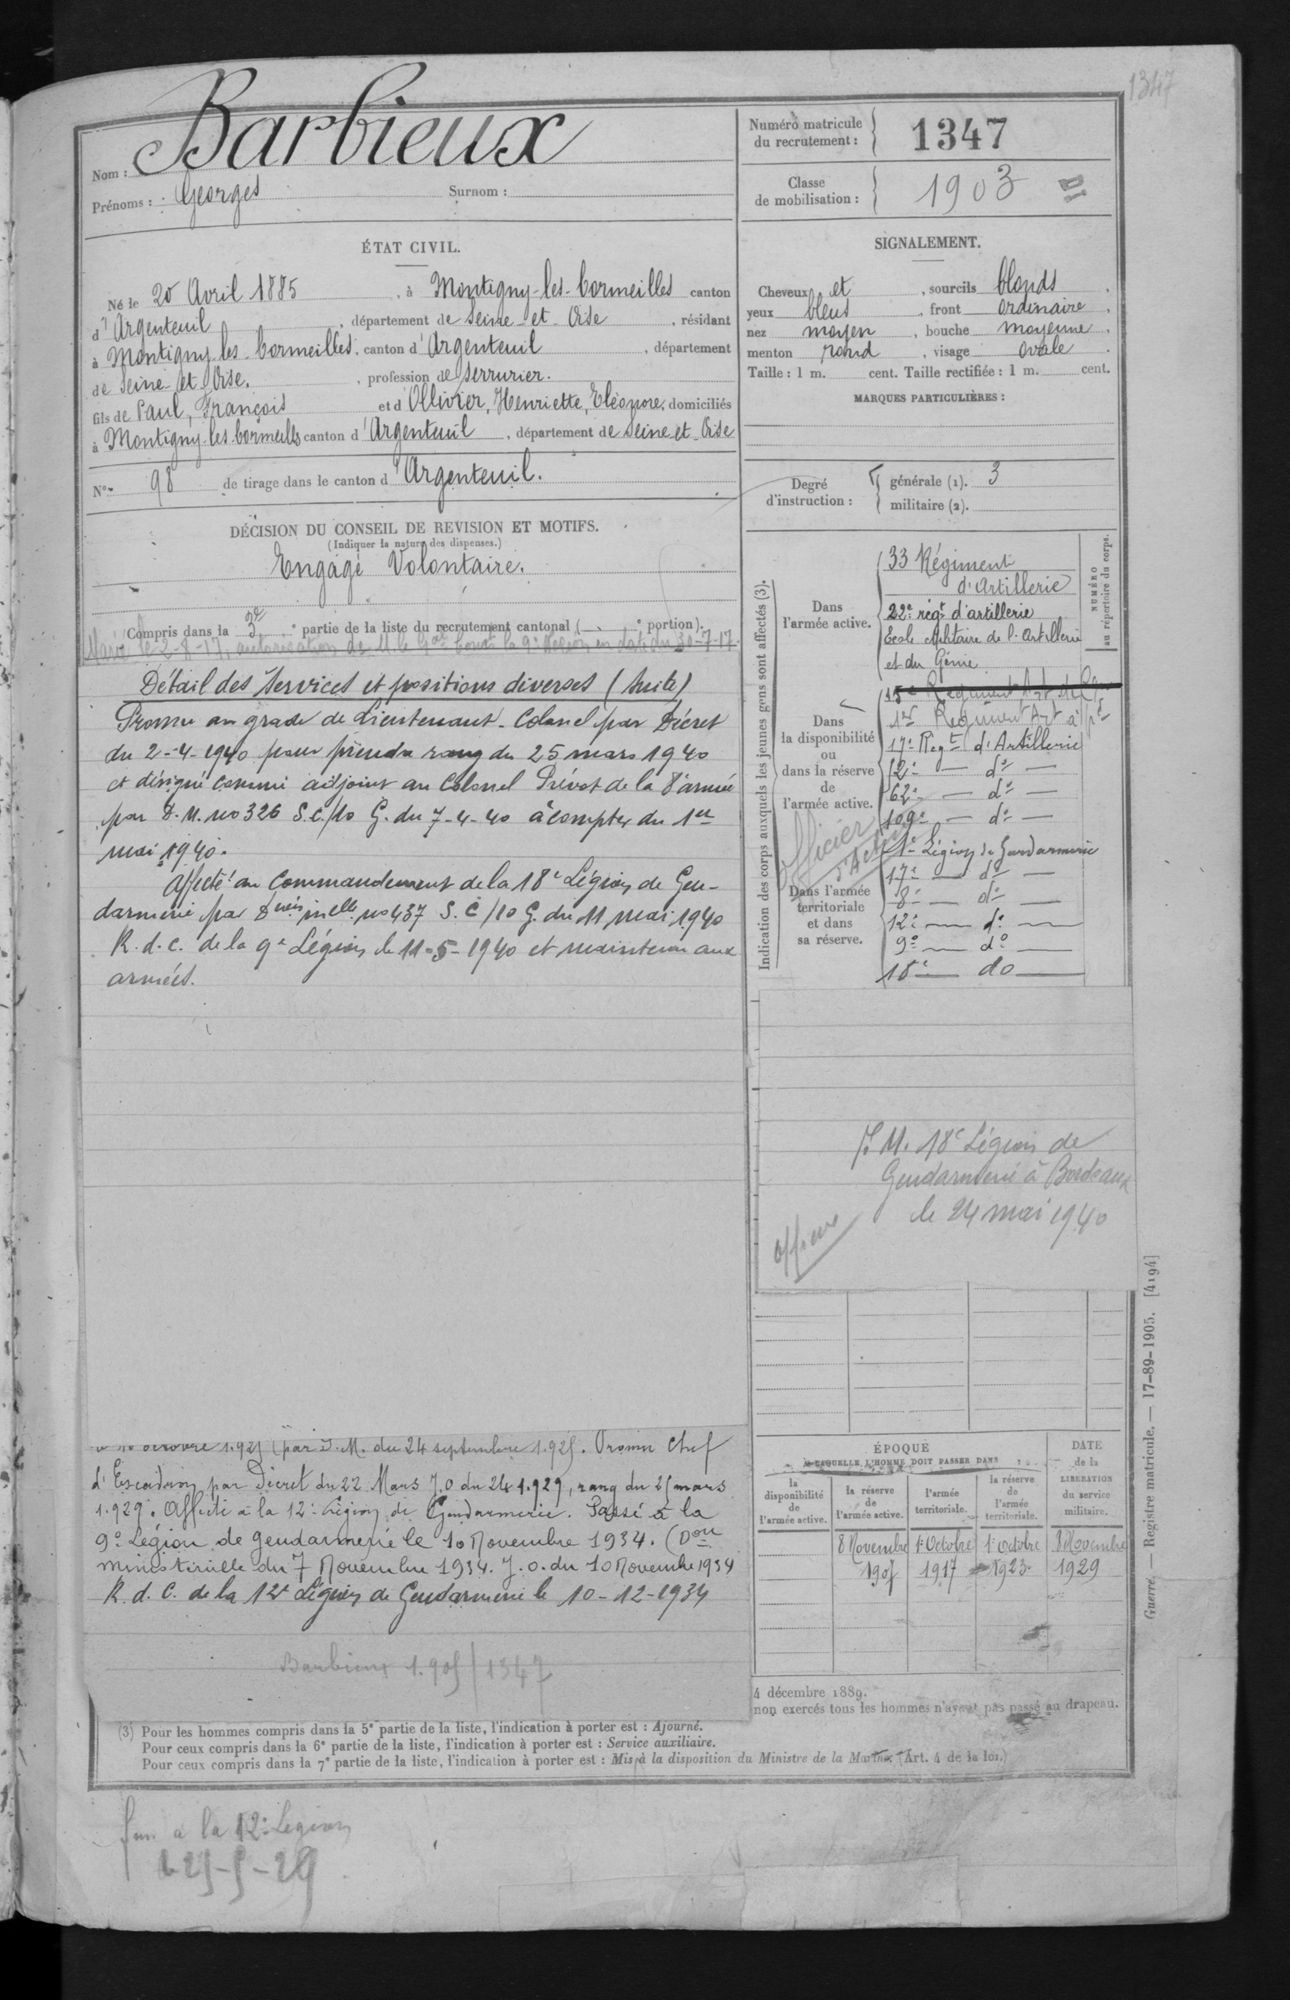 1347
Nom : Barbieux
Prénoms : Georges Surnom :
Numéro matricule du recrutement : 1347
Classe de mobilisation : 1903
ÉTAT CIVIL.
Né le 20 Avril 1885, à Montigny-les-Cormeilles canton
d'Argenteuil, département de Seine-et-Oise, résidant
à Montigny les Cormeilles, canton d'Argenteuil, département
de Seine et Oise, profession de Serrurier.
fils de Paul, François et d'Ollivier, Henriette, Eléonore, domiciliés
à Montigny-les-Cormeilles canton d'Argenteuil, département de Seine-et-Oise
N° 98 de tirage dans le canton d'Argenteuil.
DÉCISION DU CONSEIL DE REVISION ET MOTIFS.
(Indiquer la nature des dispenses.)
Engagé Volontaire.
Compris dans la 3e partie de la liste du recrutement cantonal ( e portion).
Marié le 2-8-17, autorisation de M. le Gal Comdt la 9e Région en date du 30-7-17.
Détail des Services et positions diverses (Suite)
Promu au grade de Lieutenant-Colonel par Décret
du 2-4-1940 pour prendre rang du 25 mars 1940
et désigné comme adjoint au Colonel Prévot de la 8e armée
par D.M. no 326 S.C/10 G. du 7-4-40 à compter du 1er
mai 1940.
Affecté au Commandement de la 18e Légion de Gen-
darmerie par Déson mlle no 437 S.C/10 G. du 11 mai 1940
R.d.c. de la 9e Légion le 11-5-1940 et maintenu aux
armées.
octobre 1925 (par D.M. du 24 septembre 1925. Promu Chef
d'Escadron par Décret du 22 Mars J.O du 24 1.929, rang du 25 mars
1.929. Affecté à la 12e Légion de Gendarmerie. Passé à la
9e Légion de gendarmerie le 10 Novembre 1934. (Don
ministérielle du 7 Novembre 1934. J.O. du 10 Novembre 1934
R.d.C. de la 12e Légion de Gendarmerie le 10-12-1934
Barbieux 1.905/1347
SIGNALEMENT.
Cheveux et, sourcils blonds,
yeux bleus, front ordinaire,
nez moyen, bouche moyenne,
menton rond, visage ovale.
Taille : 1 m. cent. Taille rectifiée : 1 m. cent.
MARQUES PARTICULIÈRES :
Degré d'instruction : générale (1). 3
militaire (2).
Indication des corps auxquels les jeunes gens sont affectés (3).
NUMÉRO au répertoire du corps.
Dans l'armée active.
33 Régiment
d'Artillerie
22e régt d'artillerie
Ecole Militaire de l'Artillerie
et du Génie
Dans la disponibilité ou dans la réserve de l'armée active.
1er Régiment Art à pd
17e Regt d'Artillerie
12e — do —
62e — do —
109e — do —
Officier d'Active
Dans l'armée territoriale et dans sa réserve.
1e Légion de Gendarmerie
17e — do —
8e — do —
12e — do —
9e — do
18e — do —
F.M. 18e Légion de
Gendarmerie à Bordeaux
le 24 mai 1940
officier
ÉPOQUE
À LAQUELLE L'HOMME DOIT PASSER DANS :
la disponibilité de l'armée active.
la réserve de l'armée active.
l'armée territoriale.
la réserve de l'armée territoriale.
DATE de la LIBÉRATION du service militaire.
8 Novembre 1er Octobre 1er Octobre 8 Novembre
1907 1917 1923 1929
4 décembre 1889.
non exercés tous les hommes n'ayant pas passé au drapeau.
(3) Pour les hommes compris dans la 5e partie de la liste, l'indication à porter est : Ajourné.
Pour ceux compris dans la 6e partie de la liste, l'indication à porter est : Service auxiliaire.
Pour ceux compris dans la 7e partie de la liste, l'indication à porter est : Mis à la disposition du Ministre de la Marine (Art. 4 de la loi.)
Guerre. — Registre matricule. — 17-89-1905. [4194]
à la 12e Légion